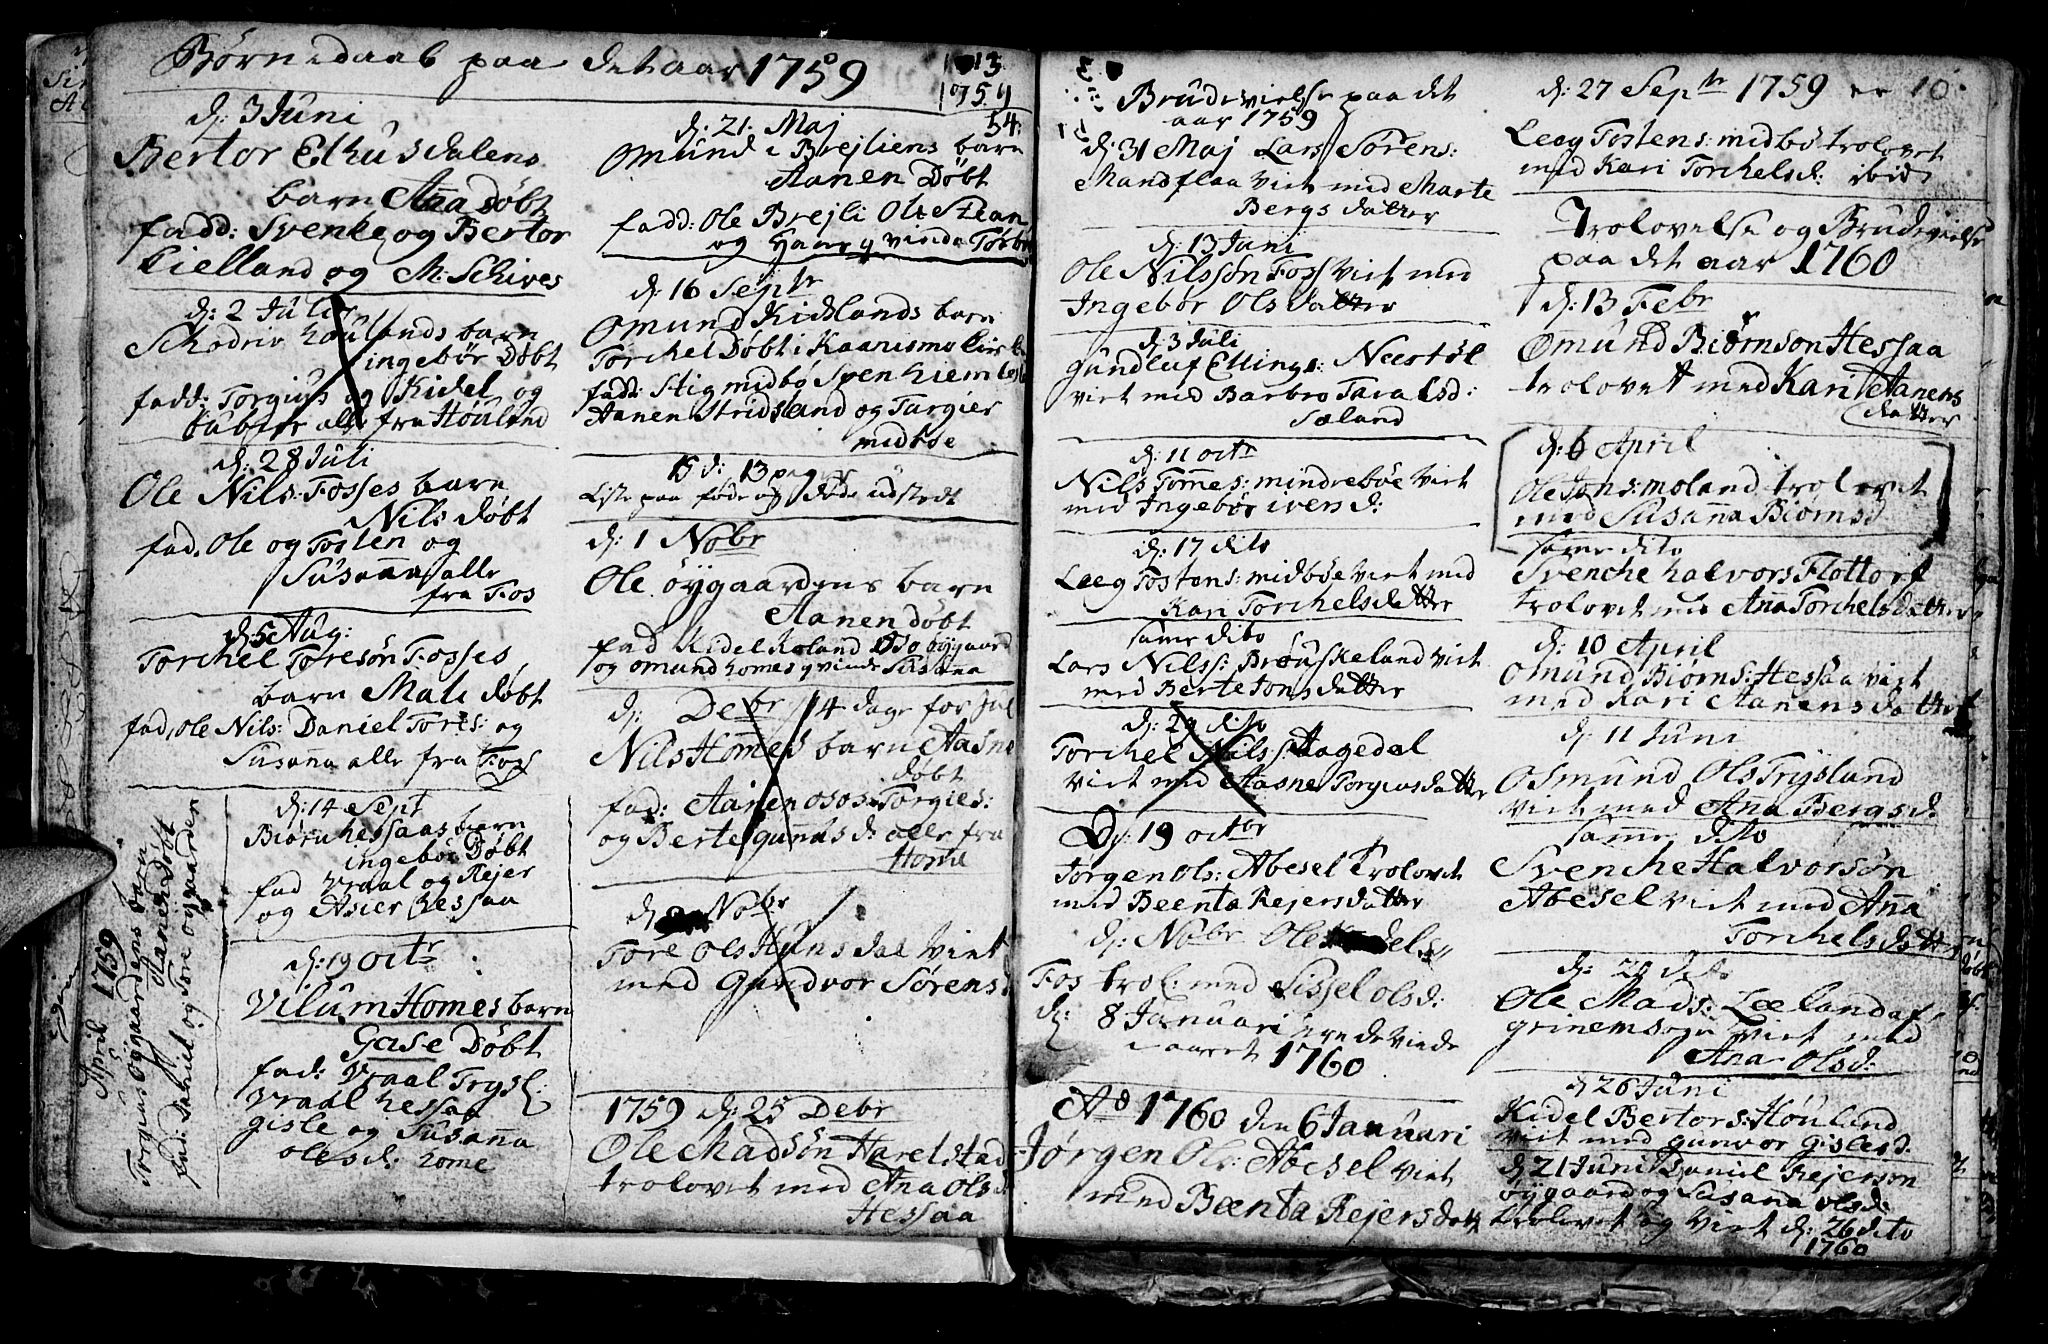 Børnedaab paa det aar 1759
d: 3 Juni
Bertor Elhusdalens
barn Aña Døbt
fadd: Svenke og Bertor
Kielland og M: Schives
d: 2 Julij
Houlands barn
ingebør Døbt
fadd: Torgius og Kidel og
alle fra Houland
d: 28 Juli
Ole Nils: Fosses barn
Nils Døbt
fad, Ole og Tosten og
Susaña alle
fra Fos
d: 5 Aug:
Torchel Toresøn Fosses,
barn Mali døbt
fad, Ole Nils: Daniel Torts: og
Susaña alle fra Fos
April 1759
Torgius Øygaardens barn
Aanen Døbt
fad: Gabriel og Tore øygaarden
d: 14 Sept
Biørn Hessaas barn
ingebør Døbt
fad Vraal og Rejer
og Asier Hessaa
d: 19 octr
Vilum Homes barn
Gase Døbt
fad: Vraal Trysl:
Vraal Hessaa
Gisle og Susaña
Olesd: Home
1759
54:
d: 21. Maj
Omund i Brejliens barn
Aanen Døbt
fadd: Ole Brejli Ole
og Hans qvinde
d: 16 Septr
Omund Kidlands barn
Torchel Døbt i
fadd: Stig midbø Sven
Aanen Stridsland og Targier
midbøe
Liste paa føde og døde udstedt
d: 1 Nobr
Ole øygaardens barn
Aanen døbt
fad Kidel Roland øygaard
og omund homes qvinde Susaña
d: Debr 14 dage for Jul
Nils Homes barn Aasne
døbt
fad: Aanen Torgies:
og Berte guñds d: alle fra
Home
d: Nobr
Tore Ols Hunsdal Virt
med Gundvor Sørens
1759 d: 25 Debr
Ole Madsøn Harelstad
trolovet med Ana Ols d
Hessaa
Brudevielse paa det
aar 1759
d: 31 Maj Lars Sørens:
Mandflaa Virt med Marte
Bergs datter
d: 13 Juni
Ole Nilssøn Foss Virt med
Ingebør Olsdatter
d: 3 Juli
Gundluf Ellings: Neestøl
virt med Barbro Taralsd:
Sæland
d: 11 octr
Nils Tom̃es: mindrebøe Virt
med Ingebør ivers d:
d: 17 dito
Leeg Tostens: midbøe virt med
Kari Torchelsdatter
sam̃e dito
Lars Nilss: Brøuskeland Virt
med Berte Jonsdatter
d: 29 dito
Torchel Nilss: Aagedal
virt med Aasne Torgiusdatter
D: 19 octbr
Jørgen Ols: Abesel trolovet
med Beenta Rejersdatter
d: Nobr Ole
Fos trol: med Sissel Olsd:
d: 8 Januari
i aaret 1760
Ao 1760 den 6 Januari
Jørgen Ols: Abesel Virt
med Beenta Rejersdatt
d: 27 Septr 1759
Leeg Tostens: midbø trolovet
med Kari Torchelsd: ibid
Trolovelse og Brudevielse
paa det aar 1760
d: 13 Febr
Omund Biørnson Hessaa
trolovet med Kari Aanens
datter
d: 6 April
Ole Jons: moland trolovet
med Susaña Biørnsd
sam̃e dito
Svenche halvors Flottorp
trolovet med Aña Torchelsdatter
d: 10 April
Omund Biørns: Hessaa virt
med Kari Aanensdatter
d: 11 Juni
Osmund Ols Trysland
Virt med Ana Bergs d:
sam̃e dito
Svenche Halvorsøn
Abesel virt med Aña
Torchelsdatter
d: 24 dito
Ole Mads: Leeland af
grinemsogn virt med
Ana Olsd:
d 26 Juni
Kidel Bertors: Høuland
virt med gunvor Gislesd:
d: 21 Juni Daniel Rejerson
øygaard og Susana olsd:
trolovet og Virt d: 26 dito
1760